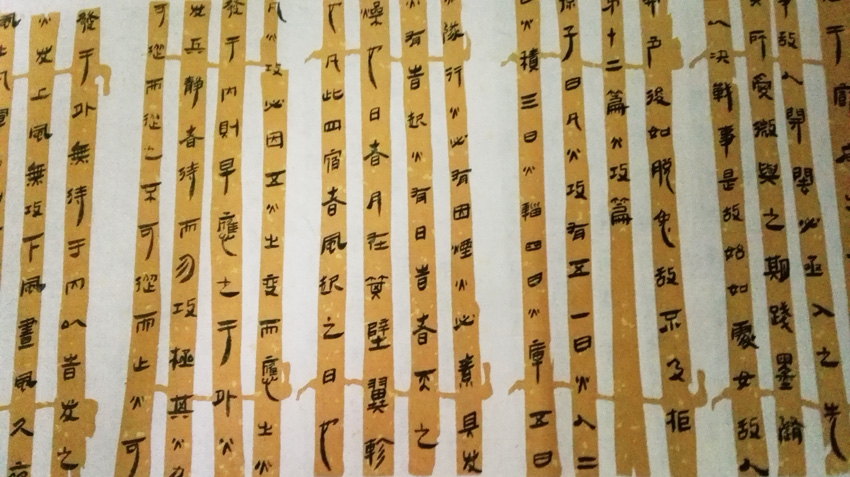 于
敵人開闔必亟入之先
其所愛微與之期踐墨隨
以決戰事是故始如處女敵人
戶後如脫兔敵不及拒
第十二篇火攻篇
孫子曰凡火攻有五一曰火人二
曰火積三曰火輜四曰火庫五曰
火隊行火必有因煙火必素具发
火有旹起火有日旹者天之
燥也日者月在箕壁翼軫
也凡此四宿者風起之日也
凡火攻必因五火之变而應之火
發于內則早應之于外火
发兵靜者待而勿攻極其火力
可從而從之不可從而止火可
發于外無待于內以旹发之
火发上風無攻下風晝風久夜